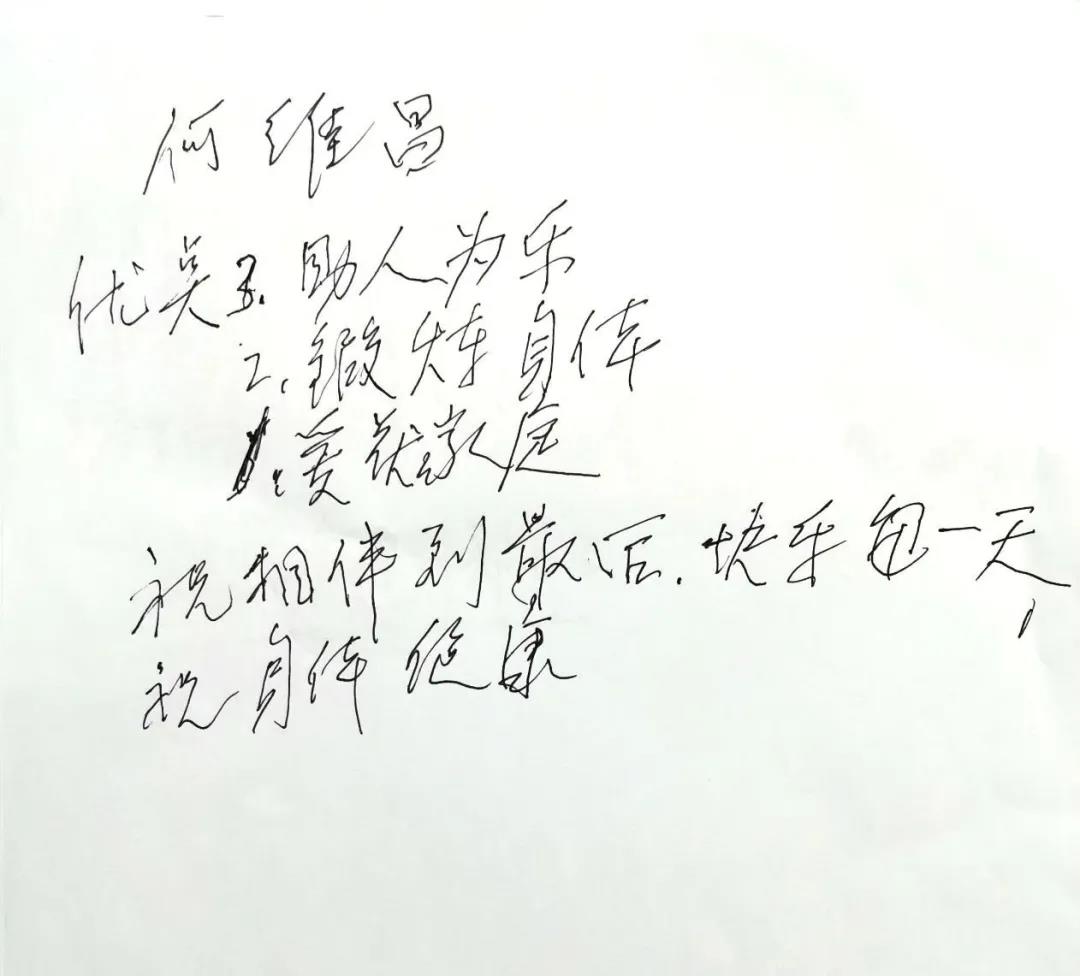 何维昌
优点3.助人为乐
2.锻炼身体
1.爱护家庭
祝相伴到最后.快乐每一天,
祝身体健康